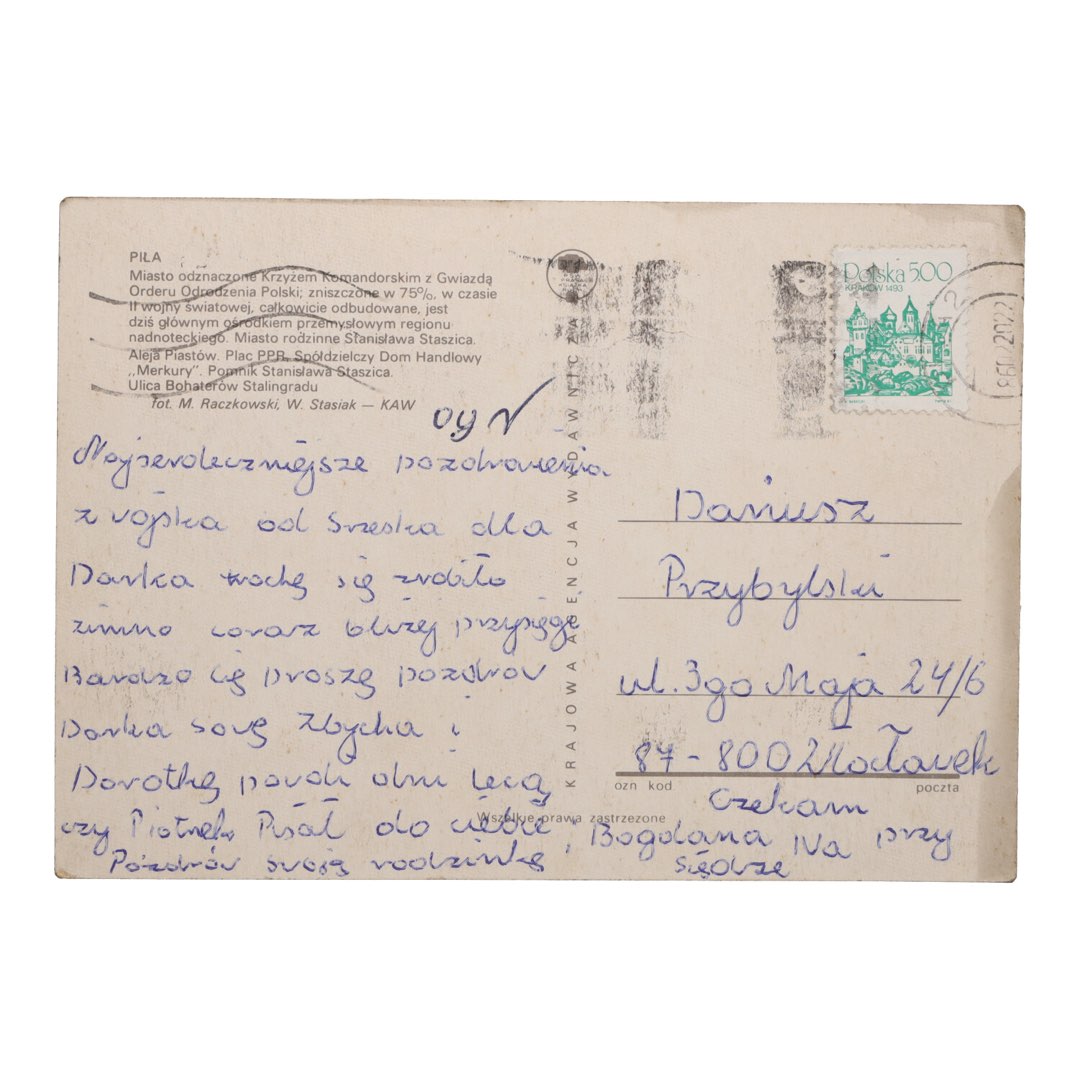 PIŁA
Miasto odznaczone Krzyżem Komandorskim z Gwiazdą
Orderu Odrodzenia Polski; zniszczone w 75%, w czasie
II wojny światowej, całkowicie odbudowane, jest
dziś głównym ośrodkiem przemysłowym regionu
nadnoteckiego. Miasto rodzinne Stanisława Staszica.
Aleja Piastów. Plac PPR. Spółdzielczy Dom Handlowy
„Merkury". Pomnik Stanisława Staszica.
Ulica Bohaterów Stalingradu
fot. M. Raczkowski, W. Stasiak — KAW
Najserdeczniejsze pozdrowienia
z wojska od dla
Darka się zrobiło
zimno coraz bliżej przysięgę
Bardzo cię proszę pozdrów
Darka Zbycha i
Dorotkę dni lecą
czy Pisał do ciebie, Bogdana przy
Pozdrów swoją rodzinkę
Czekam
KRAJOWA AGENCJA WYDAWNICZA
Polska 5.00
KRAKÓW 1493
Dariusz
Przybylski
ul. 3go Maja 24/6
87-800 Włocławek
ozn kod poczta
Wszelkie prawa zastrzeżone